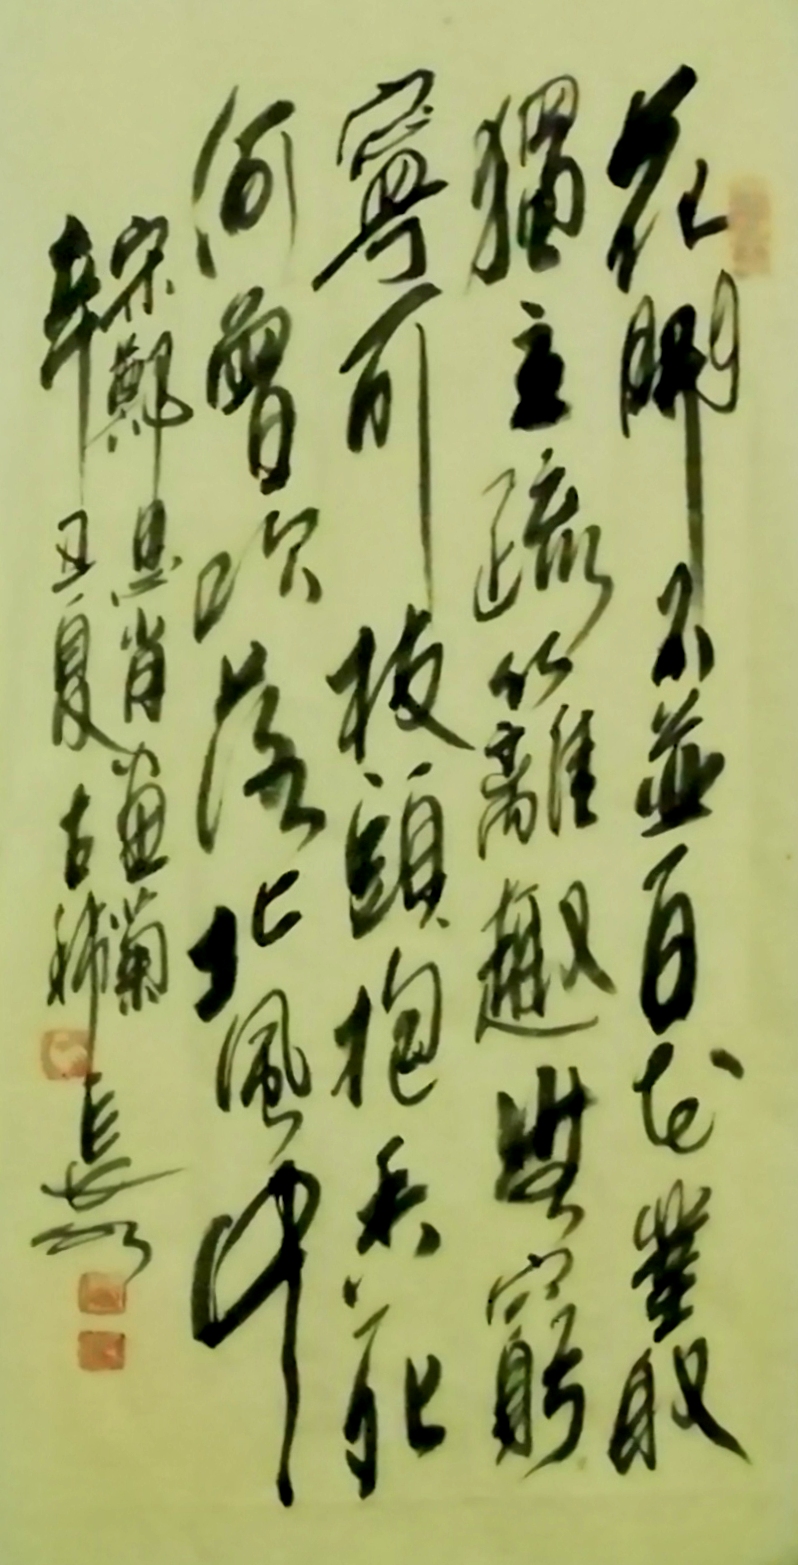 花開不並百花叢
獨立疏籬趣無窮
寧可枝頭抱香死
何曾吹落北風中
宋鄭思肖畫菊
辛丑夏古稀長